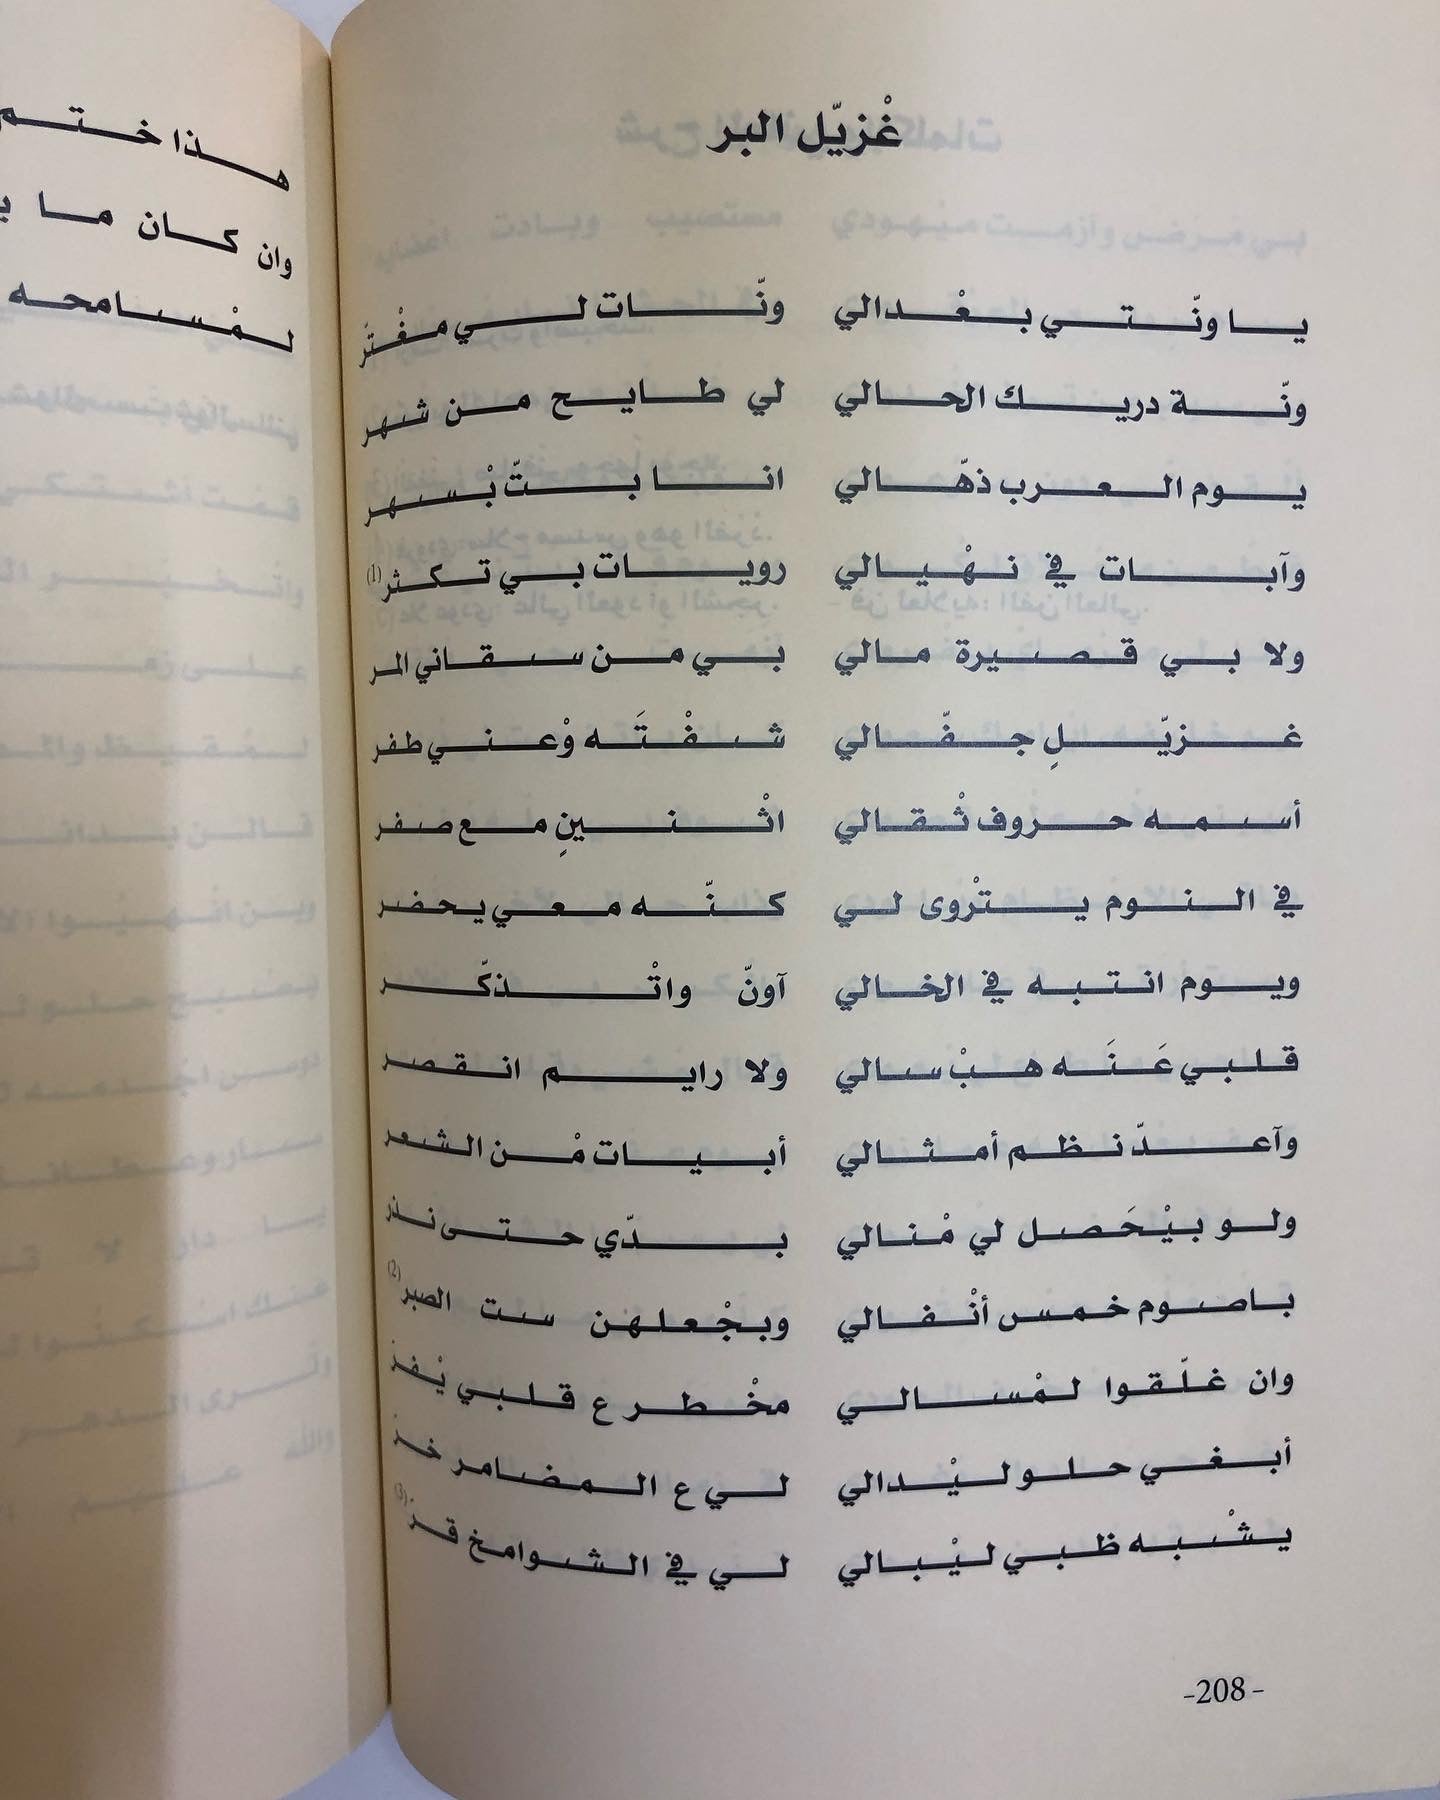 غْزيّل البر
يا ونّتي بغْدالي ونّات لي مغْترّ
ونّة دريك الحالي لي طايح من شهر
يوم العرب ذهّالي انا بتّ بْسهر
وآبات في نهْيالي رويات بي تكثر (1)
ولا بي قصيرة مالي بي من سقاني المر
غزيّلِ جفّالي شفْتَه وْعني طفر
أسمه حروف ثْقالي اثْنينِ مع صفر
في النوم يتْروى لي كنّه معي يحضر
ويوم انتبه في الخالي آونّ واتْذكّر
قلبي عَنَه هبْ سالي ولا رايم انقصر
وآعدّ نظم أمثالي أبيات مْن الشعر
ولو بيْحَصل لي مْنالي بدّي حتى نذر
باصوم خمس أنْفالي وبجْعلهن ست الصبر (2)
وان غلّقوا لمْسالي مخْطر ع قلبي يْفز
أبغي حلو ليْدالي لي ع المضامر خز
يشْبه ظبي ليْبالي لي في الشوامخ قر (3)
-208-
هذا ختم
وان كان ما
لمْسامحه